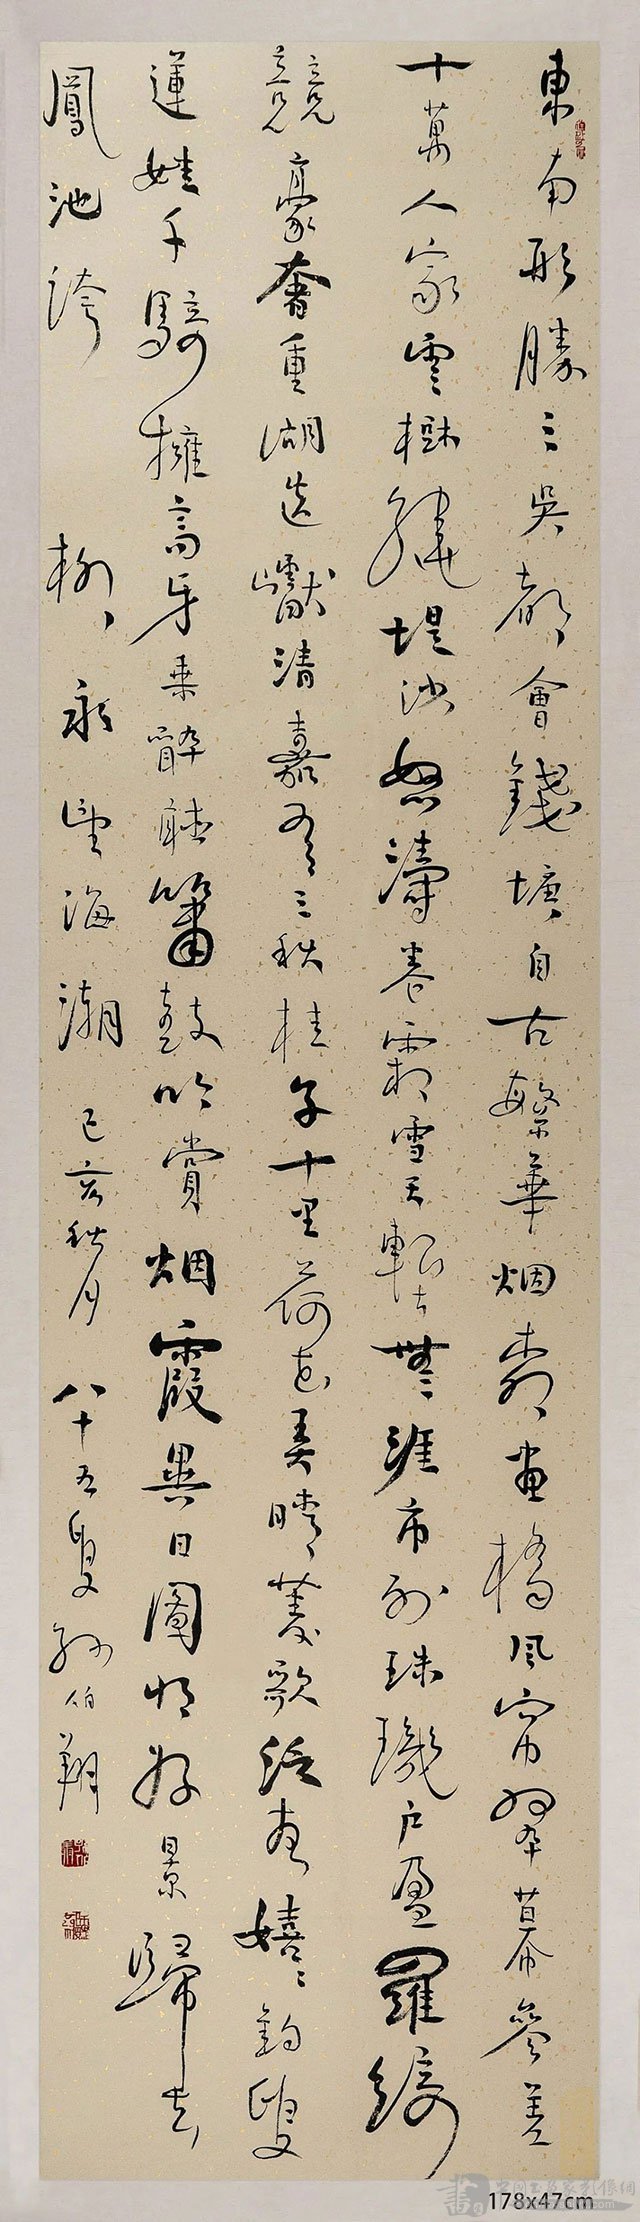 東南形勝三吳都會錢塘自古繁華烟柳畫橋風簾翠幕參差
十萬人家雲樹繞堤沙怒濤卷霜雪天塹無涯市列珠璣户盈羅綺
競豪奢重湖迭巘清嘉有三秋桂子十里荷花弄晴菱歌泛夜嬉〻釣叟
蓮娃千騎擁高牙乘醉聽簫鼓吟賞烟霞異日圖將好景歸去
鳳池誇 柳永望海潮 己亥秋月 八十五叟孫伯翔
178x47cm